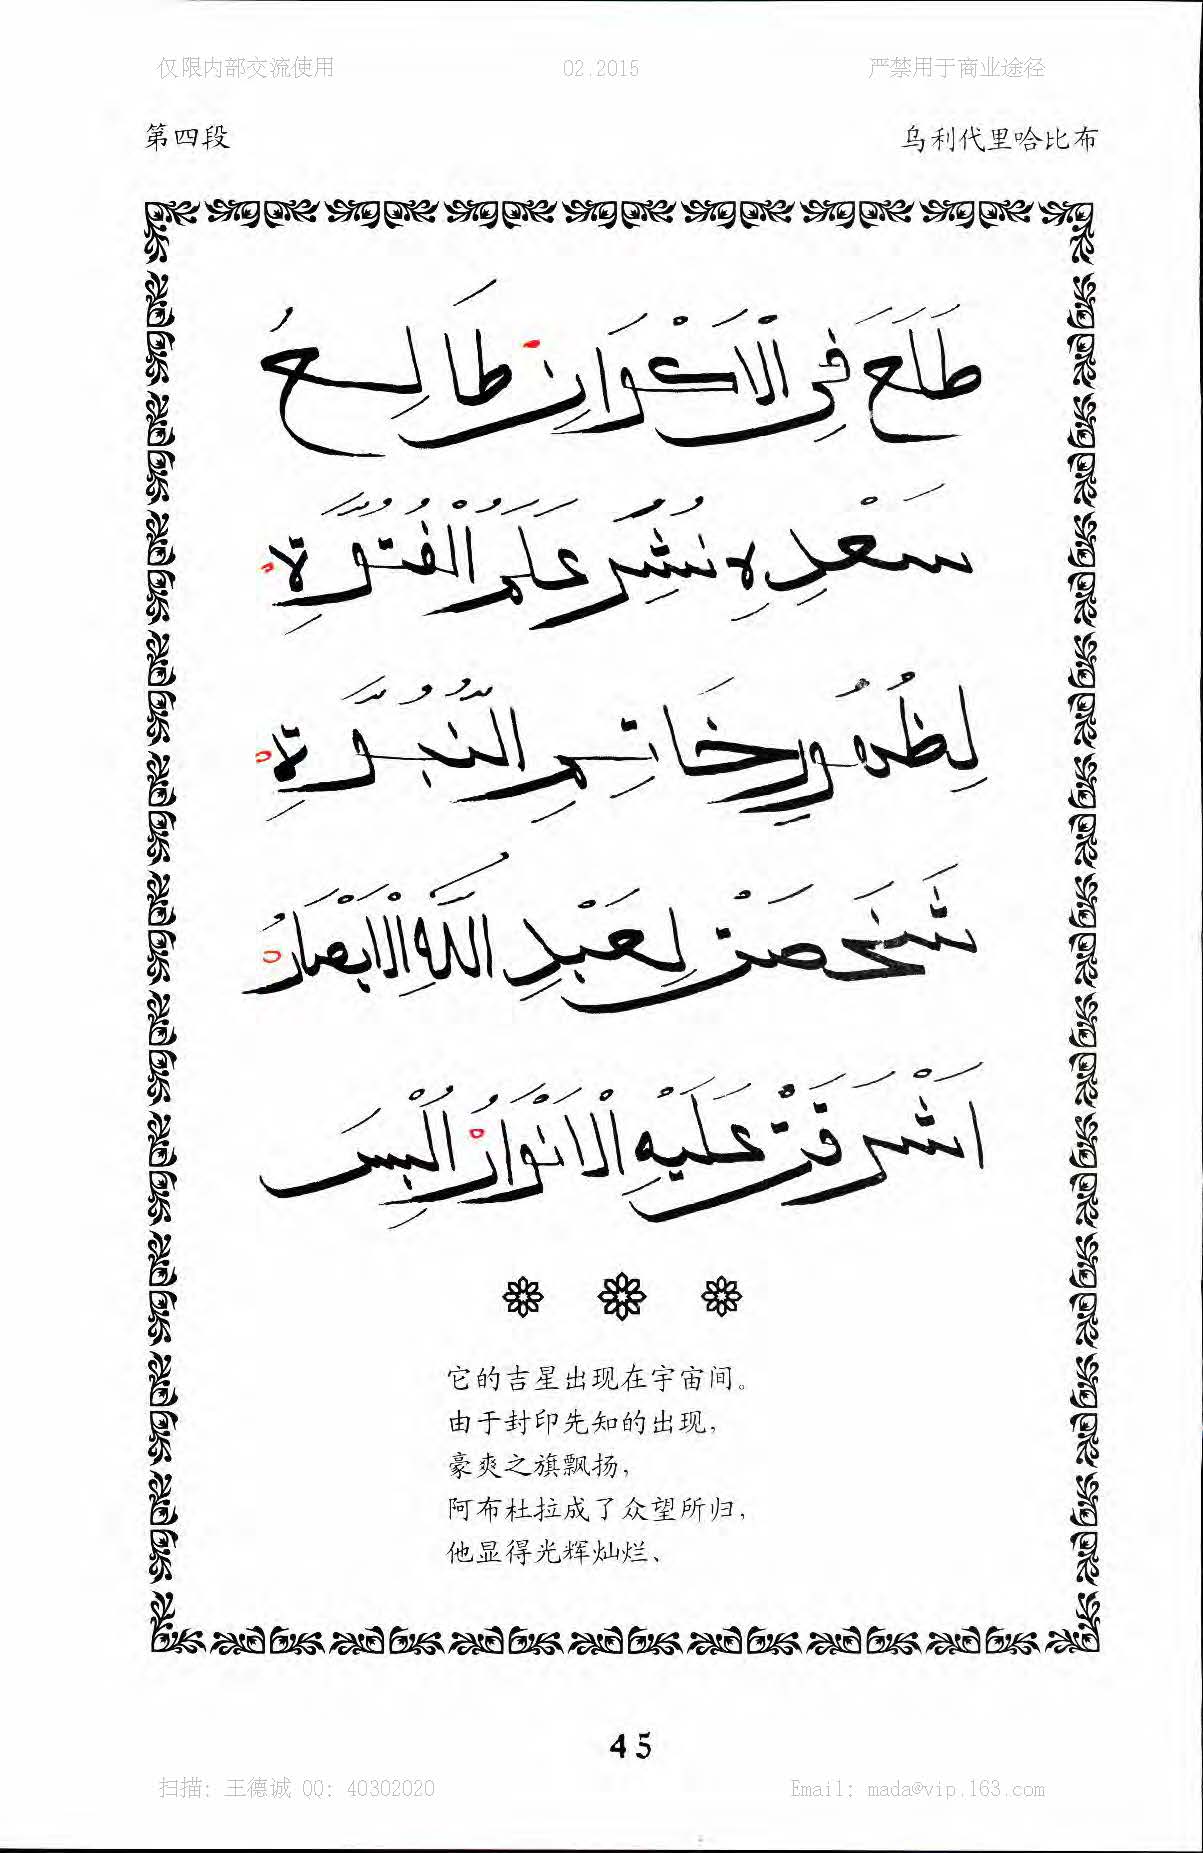 仅限内部交流使用 02.2015 严禁用于商业途径
第四段 乌利代里哈比布
طَلَعَ فِي الْاَكْوَانِ طَالِعُ
سَعْدِهِ نُشِرَ عَلَمُ الْفُتُوَّةِ
لِظُهُورِ خَاتِمِ النُّبُوَّةِ
شَخَصَتْ لِعَبْدِ اللّٰهِ الْاَبْصَارُ
اَشْرَقَتْ عَلَيْهِ الْاَنْوَارُ اُلْبِسَ
它的吉星出现在宇宙间。
由于封印先知的出现,
豪爽之旗飘扬,
阿布杜拉成了众望所归,
他显得光辉灿烂、
45
扫描: 王德诚 QQ: 40302020 Email: mada@vip.163.com